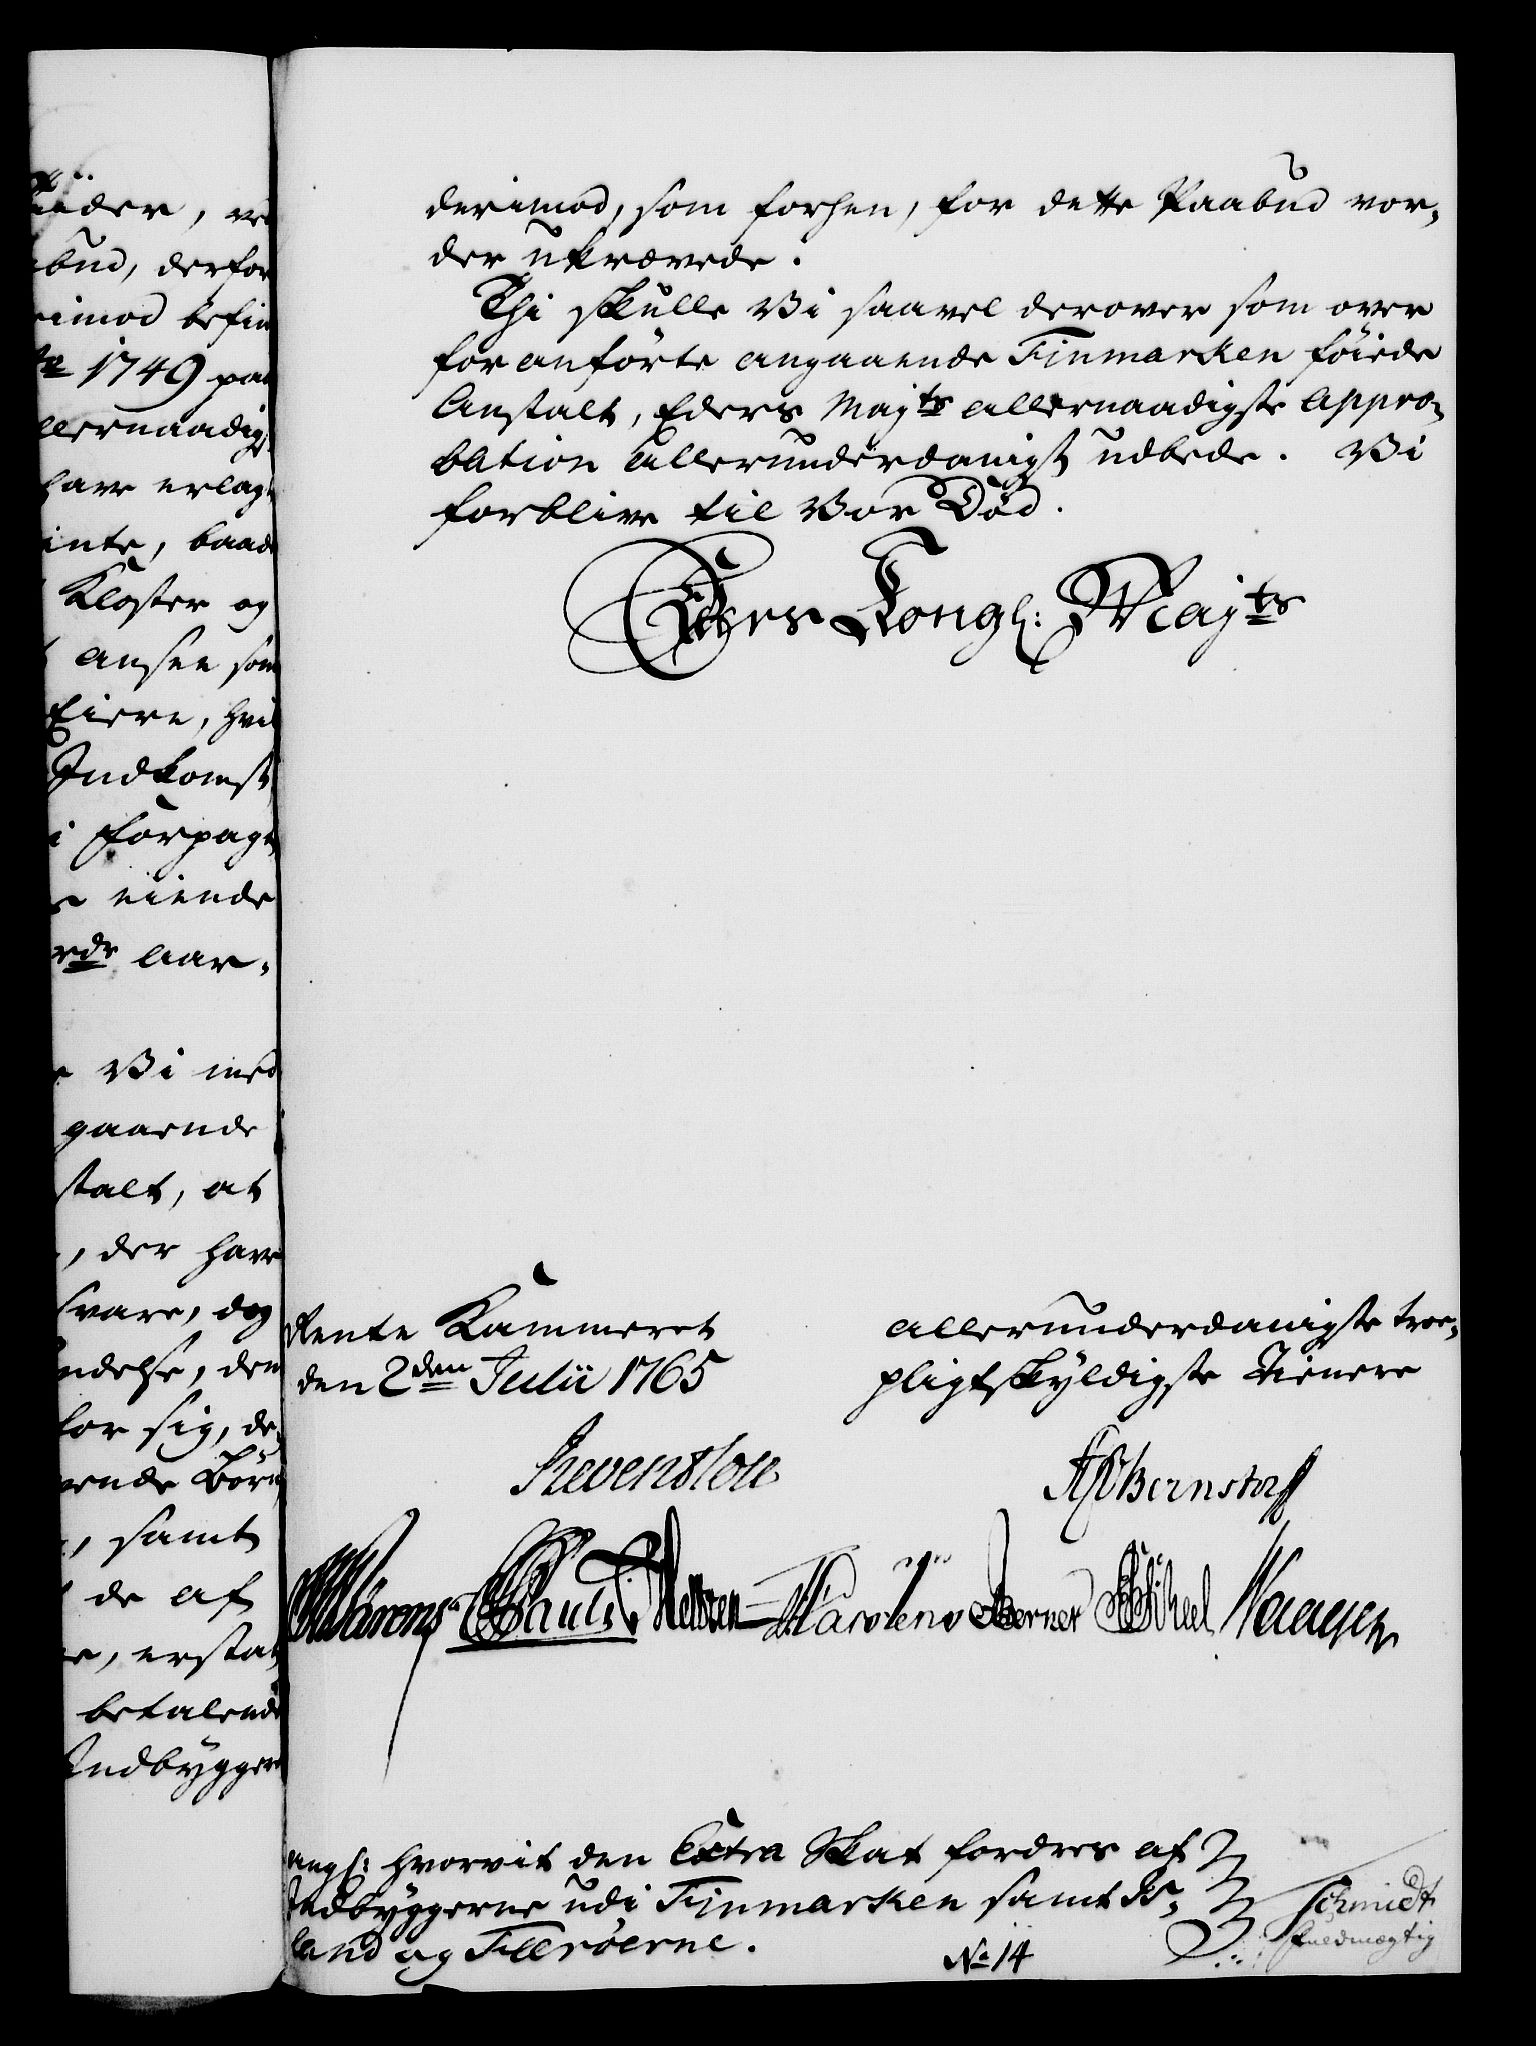 uder, ve
bud, derfor
rimod befin
1749 paa
llernaadig
have erlag
inte, baade
Kloster og
ansee som
Eiere, hvi
Indkomst
i Forpagt
eiende
rde Aar,
Vi med
gaaende
stalt, at
, der have
svare, dog
ndelse, den
for sig, de
ende Börn
, samt
de af
e, erstat
betalende
Indbyggere
derimod, som forhen, for dette Paabud vor,
der ukrævede.
Thi skulle Vi saavel derover som over
foranförte angaaende Finmarken föiede
Anstalt, Eders Majts allernaadigste Appro,
bation allerunderdanigst udbede. Vi
forblive til Vor Död.
Eders Kongl: Majts
Rente Kammeret
den 2den Julii 1765
allerunderdanigste troe,
pligtskyldigste Tienere
Reventlow
Bernstorff
Wärens Pauli Nelleen Martens Berner Scheel Waagen
angl: hvorvit den Extra Skat fordres af
Indbyggerne udi Finmarken samt Is,
land og Færöerne.
No 14
Schmidt
Fuldmægtig